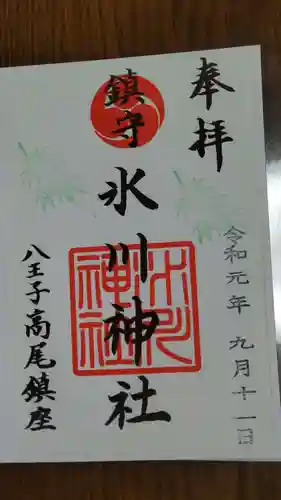 奉拝
令和元年九月十一日
鎮守
氷川神社
氷川神社
八王子高尾鎮座